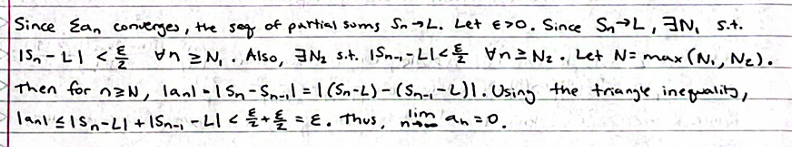 Since Σan converges, the seq of partial sums Sn→L. Let ε>0. Since Sn→L, ∃N₁ s.t.
|Sn-L| < ε/2 ∀n≥N₁. Also, ∃N₂ s.t. |Sn-₁-L|<ε/2 ∀n≥N₂. Let N=max(N₁,N₂).
Then for n≥N, |an|=|Sn-Sn-₁|=|(Sn-L)-(Sn-₁-L)|. Using the triangle inequality,
|an|≤|Sn-L|+|Sn-₁-L| < ε/2+ε/2 = ε. Thus, lim n→∞ an=0.